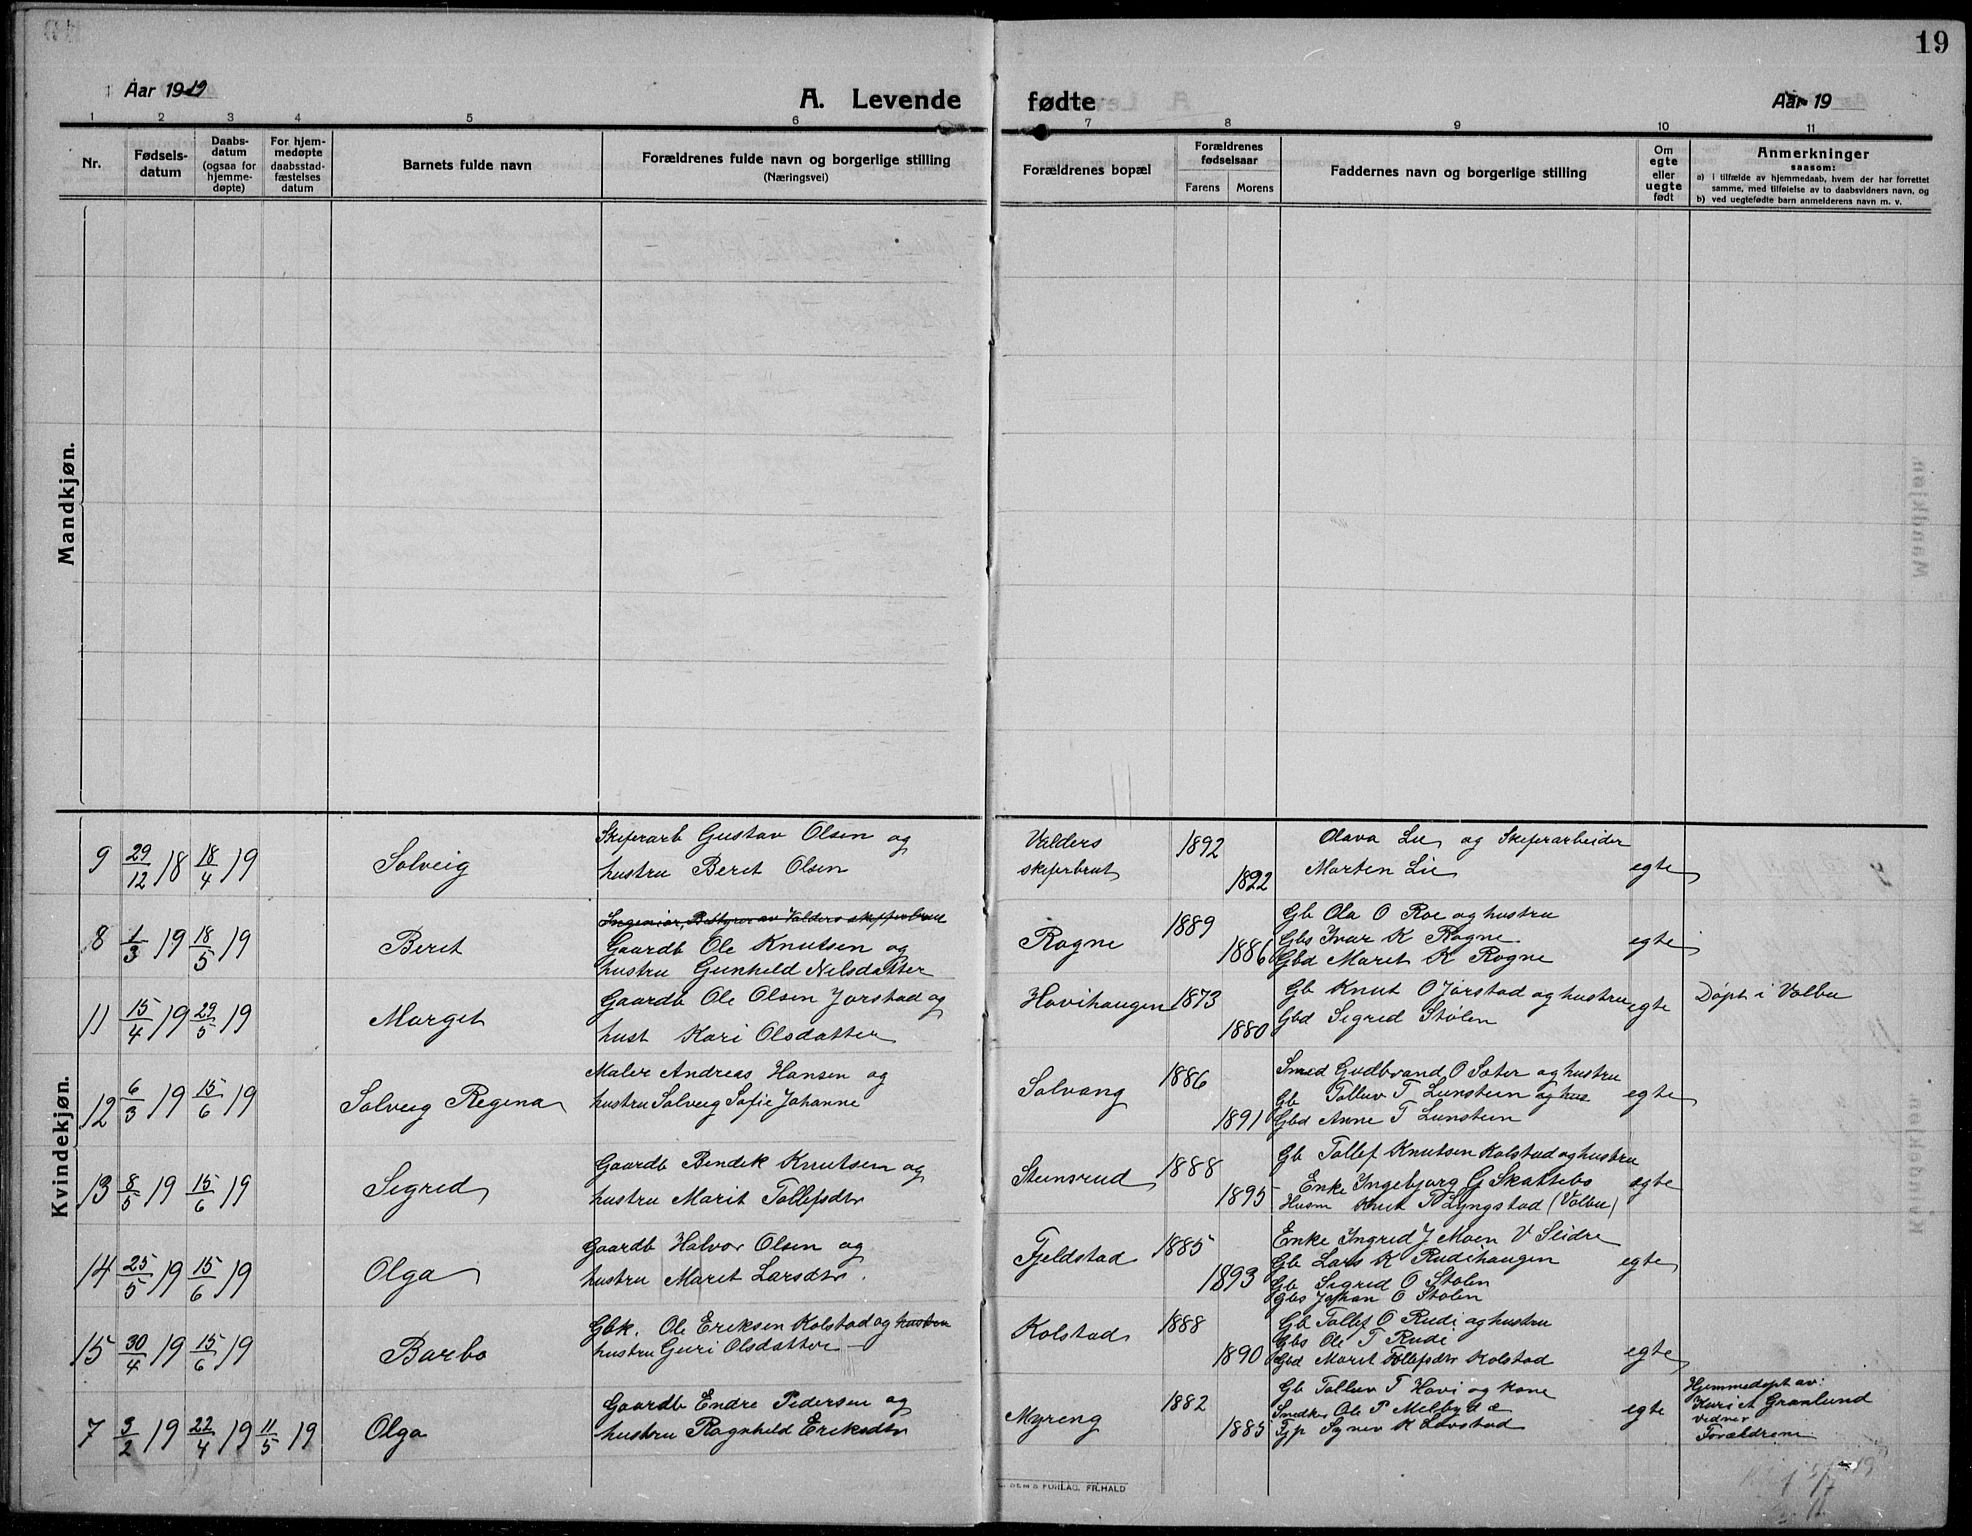 19
Aar 1919
A. Levende fødte
Aar 19
1 2 3 4 5 6 7 8 9 10 11
Nr.
Fødsels-
datum
Daabs-
datum
(ogsaa for
hjemme-
døpte)
For hjem-
medøpte
daabsstad-
fæstelses
datum
Barnets fulde navn
Forældrenes fulde navn og borgerlige stilling
(Næringsvei)
Forældrenes bopæl
Forældrenes
fødselsaar
Farens Morens
Faddernes navn og borgerlige stilling
Om
egte
eller
uegte
født
Anmerkninger
saasom:
a) i tilfælde av hjemmedaab, hvem der har forrettet
samme, med tilføielse av to daabsvidners navn, og
b) ved uegtefødte barn anmelderens navn m. v.
Mandkjøn.
Kvindekjøn.
9 29/12 18 18/4 19 Solveig
Skiferarb Gustav Olsen og
hustru Beret Olsen
Valders
skiferbrut
1892
1892
Olava Lie og Skiferarbeider
Morten Lie
egte
8 1/3 19 18/5 19 Berit
Ingeniør, Bestyrer av Valders skiferbrud
Gaardb Ole Knutsen og
hustru Gunhild Nilsdatter
Rogne
1889
1886
Gb Ola O Roe og hustru
Gbs Ivar K Rogne
Gbd Marit K Rogne
egte
11 15/4 19 29/5 19 Marget
Gaardb Ole Olsen Jorstad og
hust Kari Olsdatter
Hovihaugen
1873
1880
Gb Knut O Jorstad og hustru
Gbd Sigrid Stolen
egte
Døpt i Volbu
12 6/3 19 15/6 19 Solveig Regina
Maler Andreas Hansen og
hustru Solveig Sofie Johanne
Solvang
1886
1891
Smed Gudbrand O Sæter og hustru
Gb Tolleiv T Lunstein og hus
Gbd Anne T Lunstein
egte
13 8/5 19 15/6 19 Sigrid
Gaardb Bendik Knutsen og
hustru Marit Tollefsdtr
Steinsrud
1888
1895
Gb Tollef Knutsen Kolstad og hustru
Enke Ingebjørg G Skattebo
Husm Knut T Lyngstad (Volbu)
egte
14 25/5 19 15/6 19 Olga
Gaardb Halvor Olsen og
hustru Marit Larsdtr.
Fjeldstad
1885
1893
Enke Ingrid J Moen V Slidre
Gb Lars K Rudihaugen
Gb Sigrid O Stolen
Gbs Johan O Stolen
egte
15 30/4 19 15/6 19 Barbo
Gbk. Ole Eriksen Kolstad og hustru
hustru Guri Olsdatter
Kolstad
1888
1890
Gb Tollef O Rudi og hustru
Gbs Ole T Rudi
Gbd Marit Tollefsdtr Kolstad
egte
7 3/2 19 22/4 19 11/5 19 Olga
Gaardb Endre Pedersen og
hustru Ragnhild Eriksdtr
Myreng
1882
1885
Gb Tolleiv T Hovi og kone
Snedker Ole P Melby
Tjp Synev K Lovstad
egte
Hjemmedøpt av:
Kari A Granlund
vidner
Forældrene
FORLAG, FR.HALD